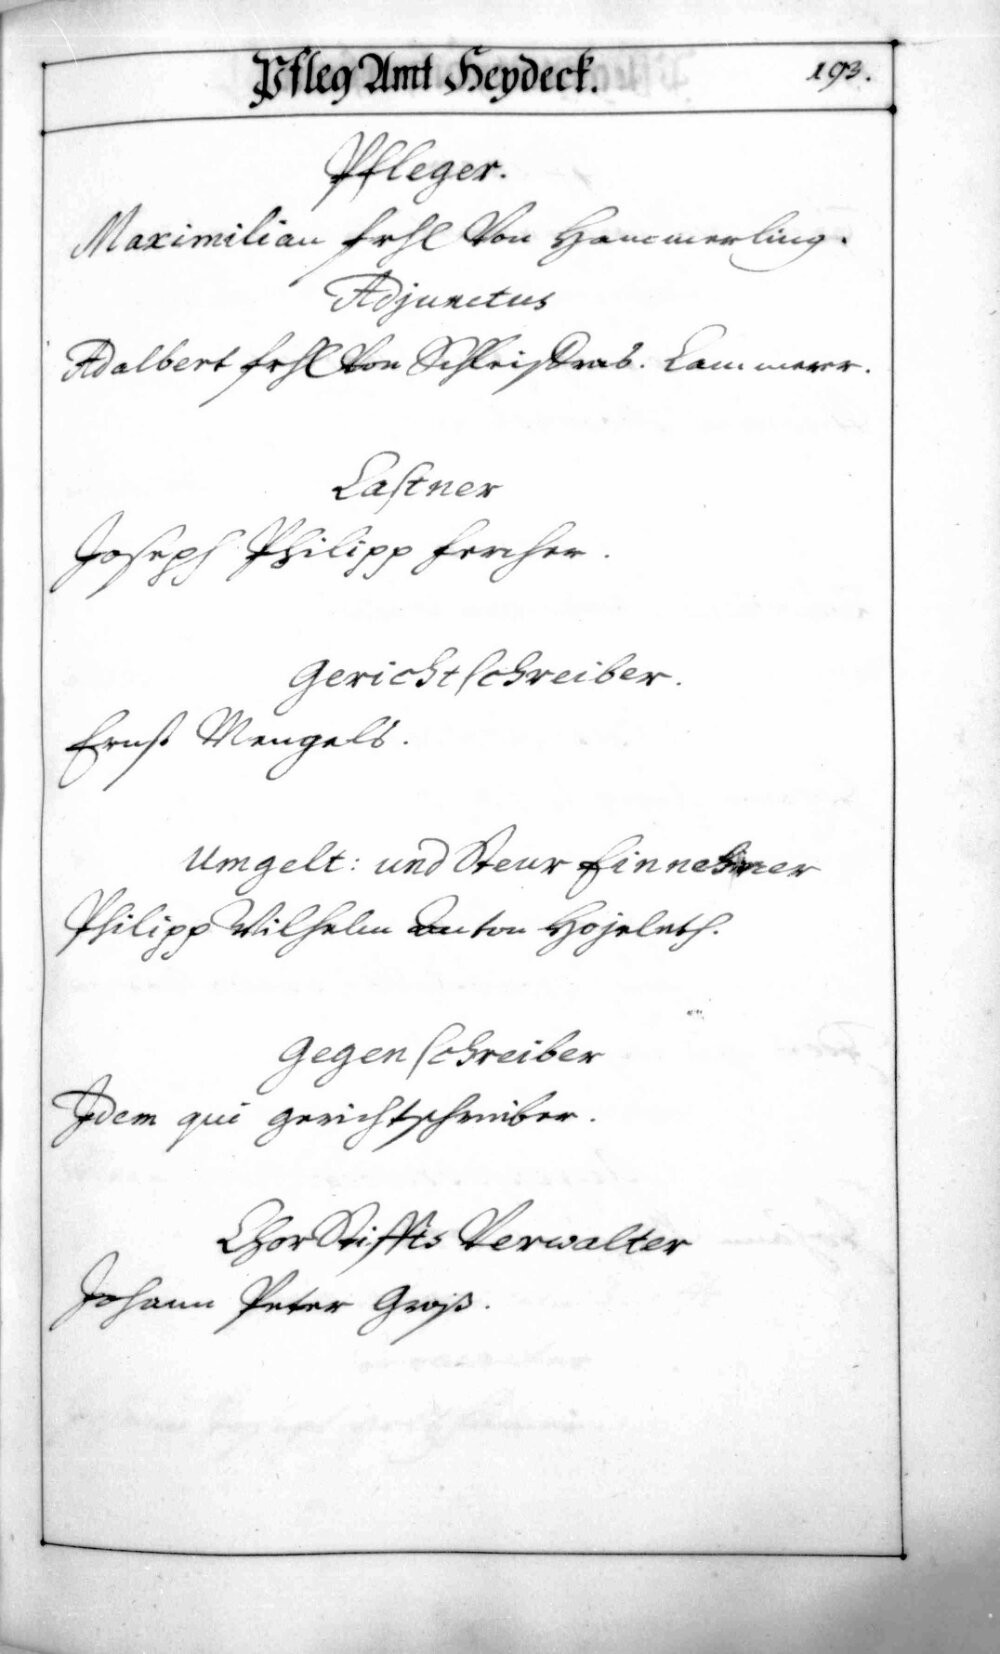 Pfleg Amt Heydeck.
193.
Pfleger.
Maximilian frhl Von Hammerling.
Adjunctus
Adalbert frhl Von Cammerr.
Castner
Joseph Philipp fercher.
Gerichtschreiber.
Ernst Mengels.
Umgelt: und Steur Einnehmer
Philipp Wilhelm Anton
Gegenschreiber
Idem qui gerichtschreiber.
Chor Stiffts Verwalter
Johann Peter Groß.